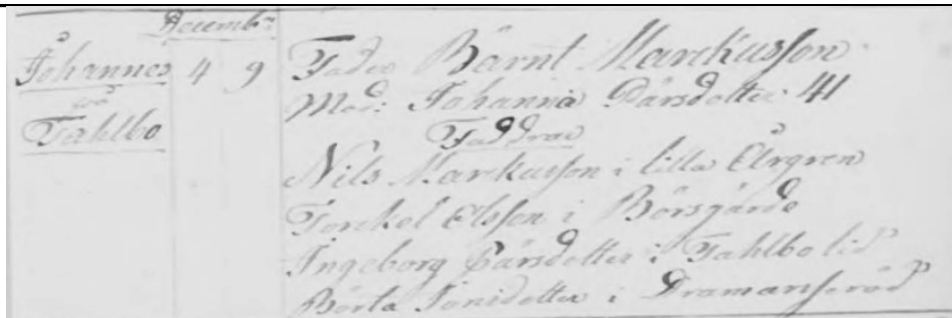 Decemb:
Johannes 4 9 Fader Bärnt Marckusson
på Mod: Johanna Pärsdotter 41
Fahlbo Faddrar
Nils Markusson i lilla
Torckel Olsson i Börsgärde
Ingeborg Pärsdotter i Fahlbo lid
Börta Jonsdotter i Dramansröd